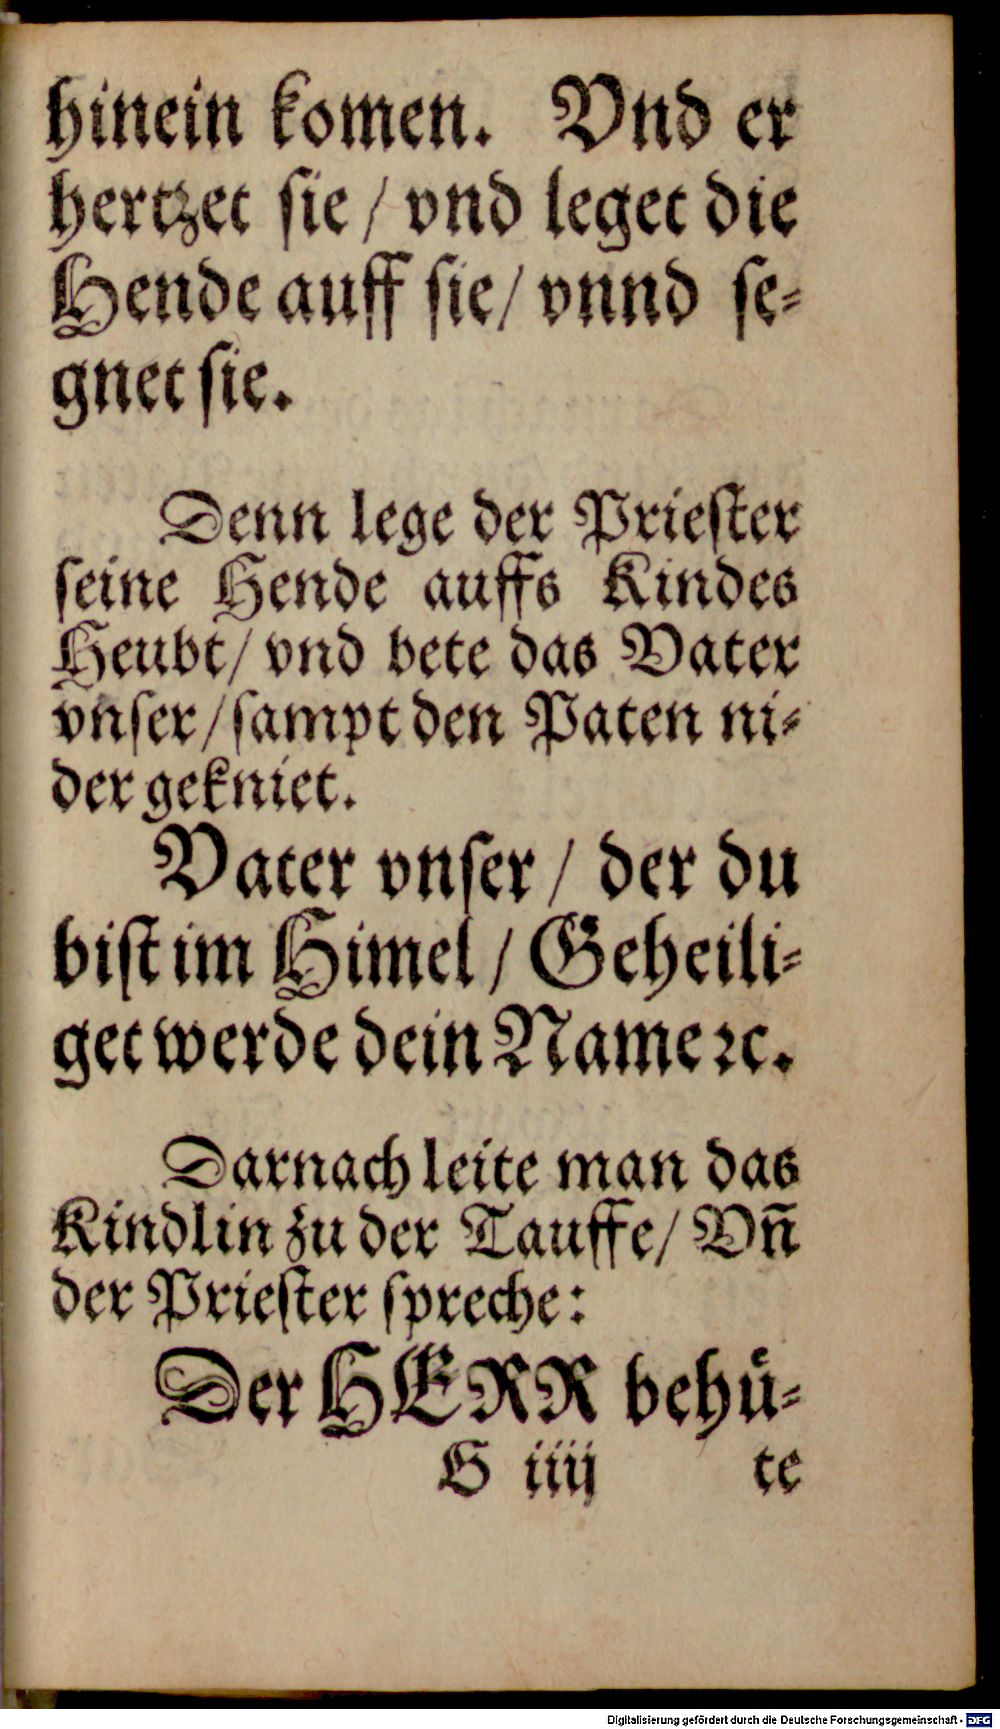 hinein komen. Vnd er
hertzet sie / vnd leget die
Hende auff sie / vnnd se⸗
gnet sie.
Denn lege der Priester
seine Hende auffs Kindes
Heubt / vnd bete das Vater
vnser / sampt den Paten ni⸗
der gekniet.
Vater vnser / der du
bist im Himel / Geheili⸗
get werde dein Name ꝛc.
Darnach leite man das
Kindlin zu der Tauffe / Vn̄
der Priester spreche:
Der HERR behuͤ⸗
G iiij te
Digitalisierung gefördert durch die Deutsche Forschungsgemeinschaft - DFG